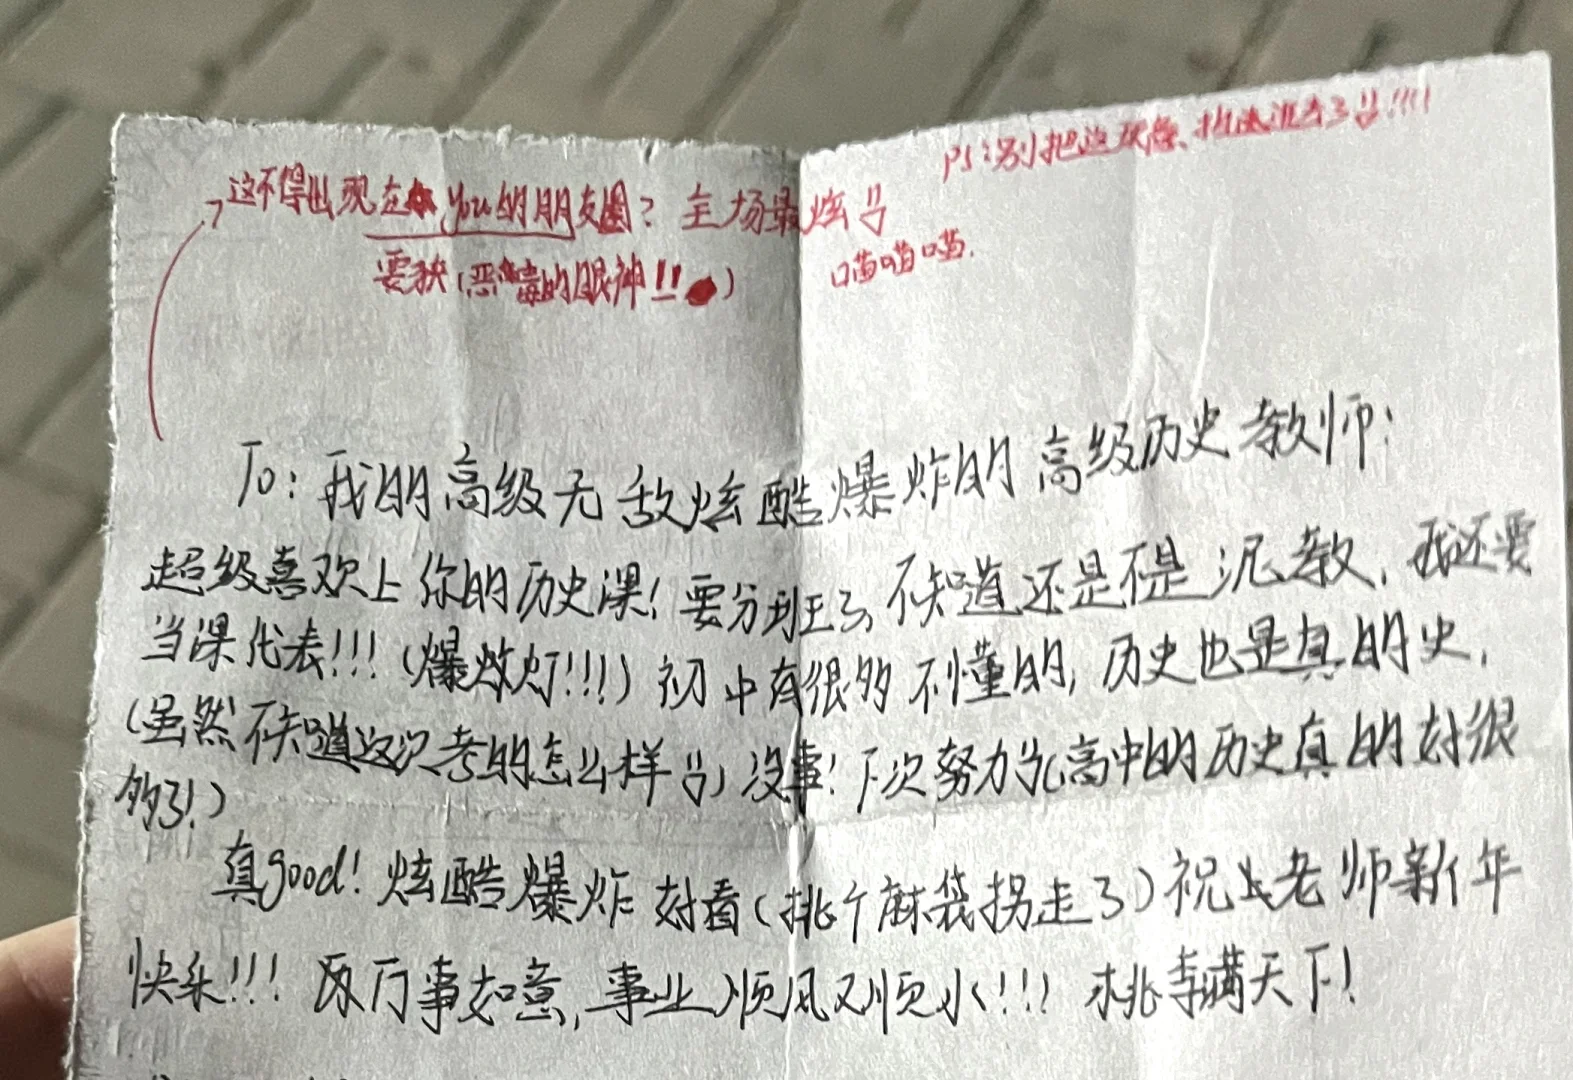 PS:别把这
这不得出现在 you的朋友圈? 主场最炫
要狱(恶毒的眼神!!)
喵喵喵.
To: 我的高级无敌炫酷爆炸的高级历史教师:
超级喜欢上你的历史课! 要分班了, 不知道还是不是 泥教, 我还要
当课代表!!! (爆炸灯!!!) 初中有很多不懂的, 历史也是真的史,
(虽然不知道这次考的怎么样) 没事! 下次努力(高中的历史真的好很
多了!)
真good! 炫酷爆炸好看(挑个麻袋拐走了) 祝 老师新年
快乐!!! 万事如意, 事业顺风又顺水!!! 桃李满天下!